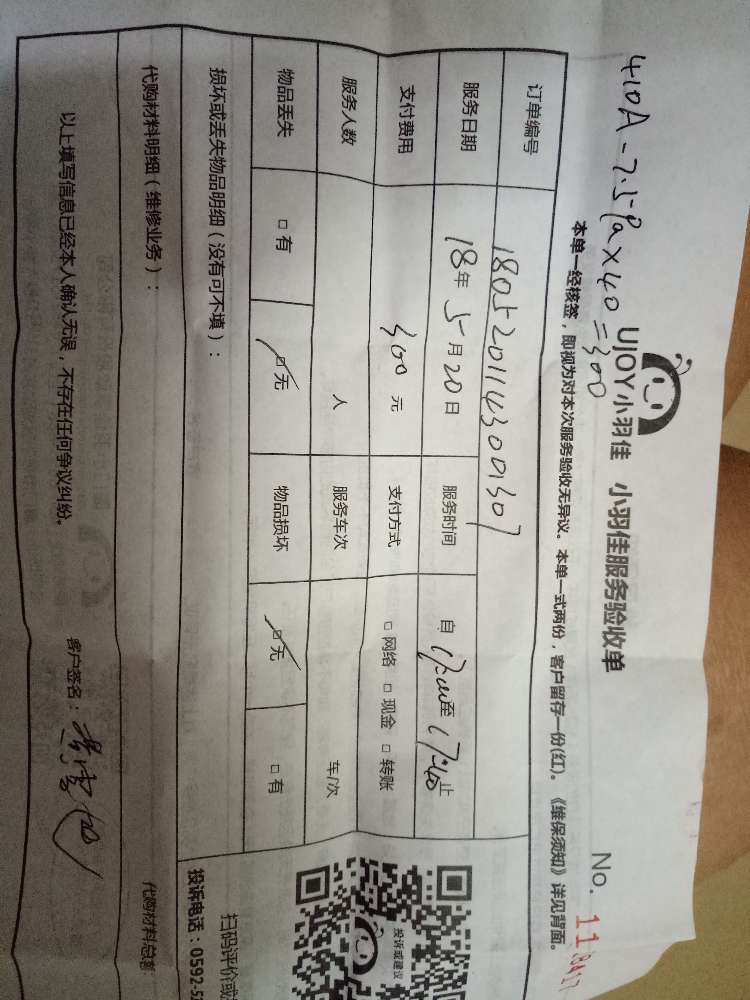 410A-7.5Pa×40=300
UJOY小羽佳 小羽佳服务验收单
No. 118417
本单一经核签，即视为对本次服务验收无异议。本单一式两份，客户留存一份(红)。《维保须知》详见背面。
订单编号 1805201143001307
服务日期 18年5月20日 服务时间 自17:00至17:40止
支付费用 300元 支付方式 □网络 □现金 □转账
服务人数 人 服务车次 车/次
物品丢失 □有 □无 物品损坏 □无 □有
损坏或丢失物品明细（没有可不填）：
代购材料明细（维修业务）： 代购材料总
以上填写信息已经本人确认无误，不存在任何争议纠纷。 客户签名：
投诉或建议
扫码评价或
投诉电话：0592-5